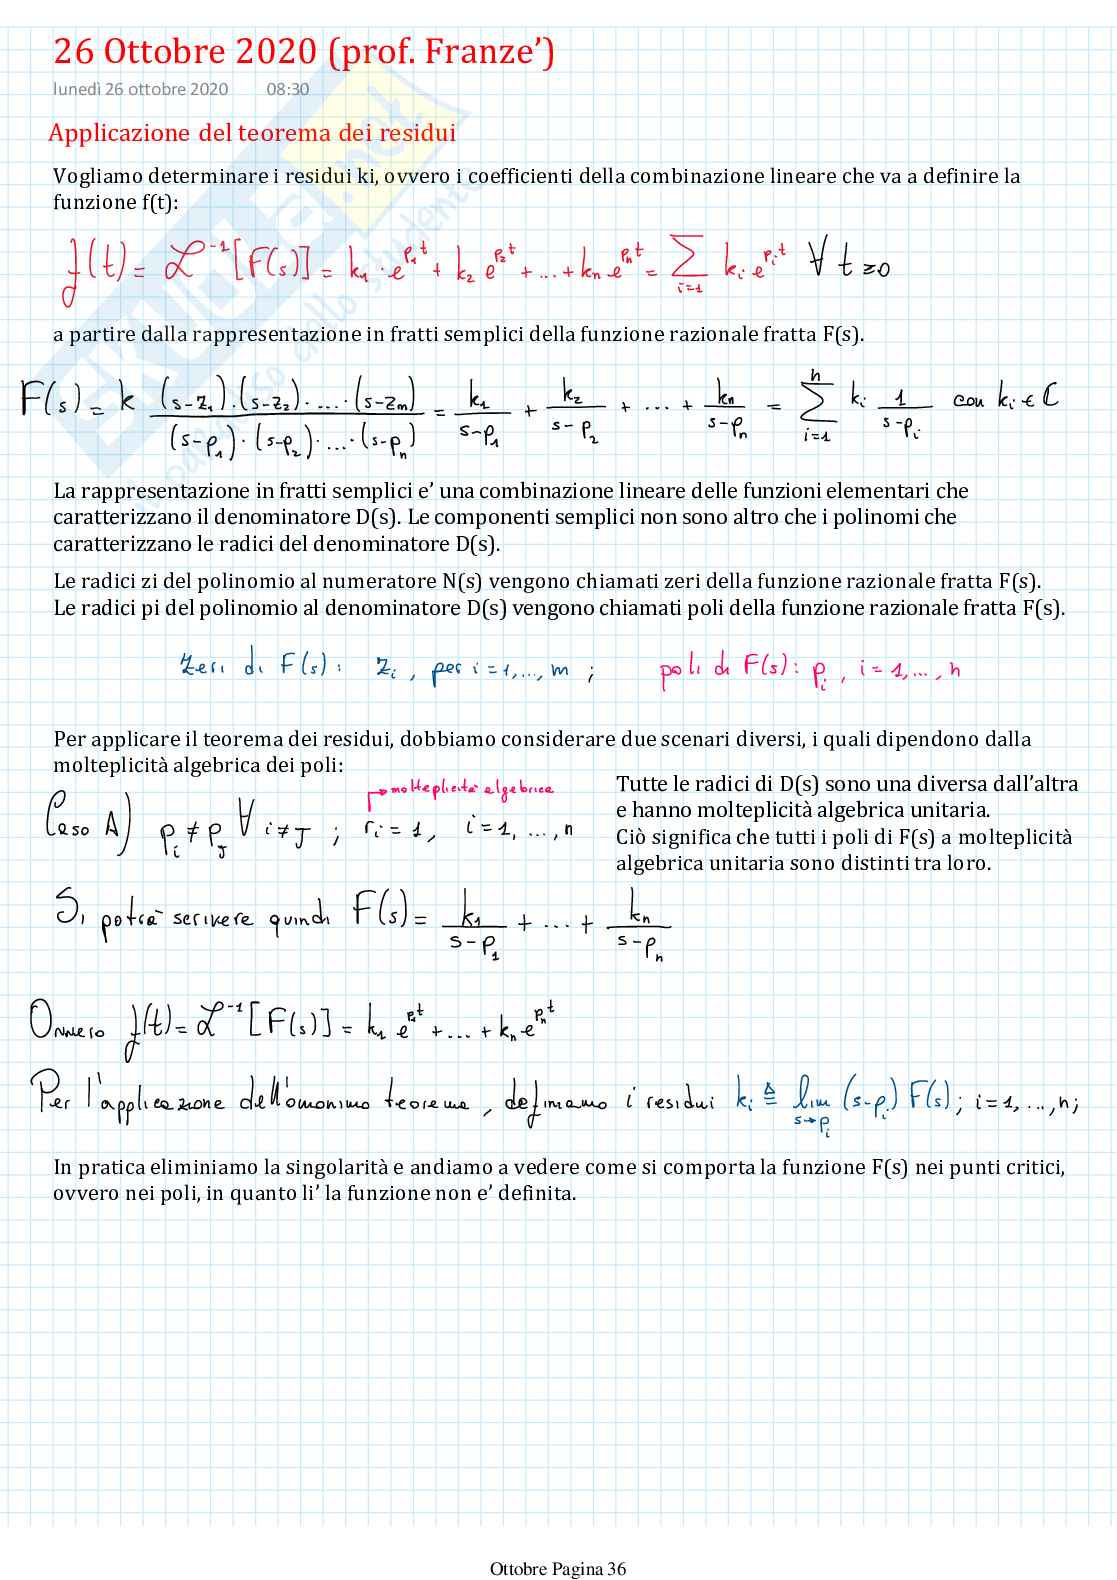 26 Ottobre 2020 (prof. Franze’)
lunedì 26 ottobre 2020 08:30
Applicazione del teorema dei residui
Vogliamo determinare i residui ki, ovvero i coefficienti della combinazione lineare che va a definire la
funzione f(t):
f(t) = ℒ⁻¹[F(s)] = k₁ · e^{p₁t} + k₂ e^{p₂t} + ... + kₙ e^{pₙt} = ∑_{i=1} kᵢ e^{pᵢt} ∀ t≥0
a partire dalla rappresentazione in fratti semplici della funzione razionale fratta F(s).
F(s) = k \frac{(s-z₁)·(s-z₂)·...·(s-zₘ)}{(s-p₁)·(s-p₂)·...·(s-pₙ)} = \frac{k₁}{s-p₁} + \frac{k₂}{s-p₂} + ... + \frac{kₙ}{s-pₙ} = ∑_{i=1}^{n} kᵢ \frac{1}{s-pᵢ} con kᵢ ∈ ℂ
La rappresentazione in fratti semplici e’ una combinazione lineare delle funzioni elementari che
caratterizzano il denominatore D(s). Le componenti semplici non sono altro che i polinomi che
caratterizzano le radici del denominatore D(s).
Le radici zi del polinomio al numeratore N(s) vengono chiamati zeri della funzione razionale fratta F(s).
Le radici pi del polinomio al denominatore D(s) vengono chiamati poli della funzione razionale fratta F(s).
zeri di F(s): zᵢ, per i=1,...,m ; poli di F(s): pᵢ, i=1,...,n
Per applicare il teorema dei residui, dobbiamo considerare due scenari diversi, i quali dipendono dalla
molteplicità algebrica dei poli:
molteplicità algebrica
Caso A) pᵢ ≠ p_J ∀ i≠J ; rᵢ = 1, i=1,...,n
Tutte le radici di D(s) sono una diversa dall’altra
e hanno molteplicità algebrica unitaria.
Ciò significa che tutti i poli di F(s) a molteplicità
algebrica unitaria sono distinti tra loro.
Si potrà scrivere quindi F(s) = \frac{k₁}{s-p₁} + ... + \frac{kₙ}{s-pₙ}
Ovvero f(t) = ℒ⁻¹[F(s)] = k₁ e^{p₁t} + ... + kₙ e^{pₙt}
Per l'applicazione dell'omonimo teorema, definiamo i residui kᵢ ≜ lim_{s→pᵢ} (s-pᵢ) F(s); i=1,...,n;
In pratica eliminiamo la singolarità e andiamo a vedere come si comporta la funzione F(s) nei punti critici,
ovvero nei poli, in quanto li’ la funzione non e’ definita.
Ottobre Pagina 36
SKUOLA.net
il paradiso dello studente